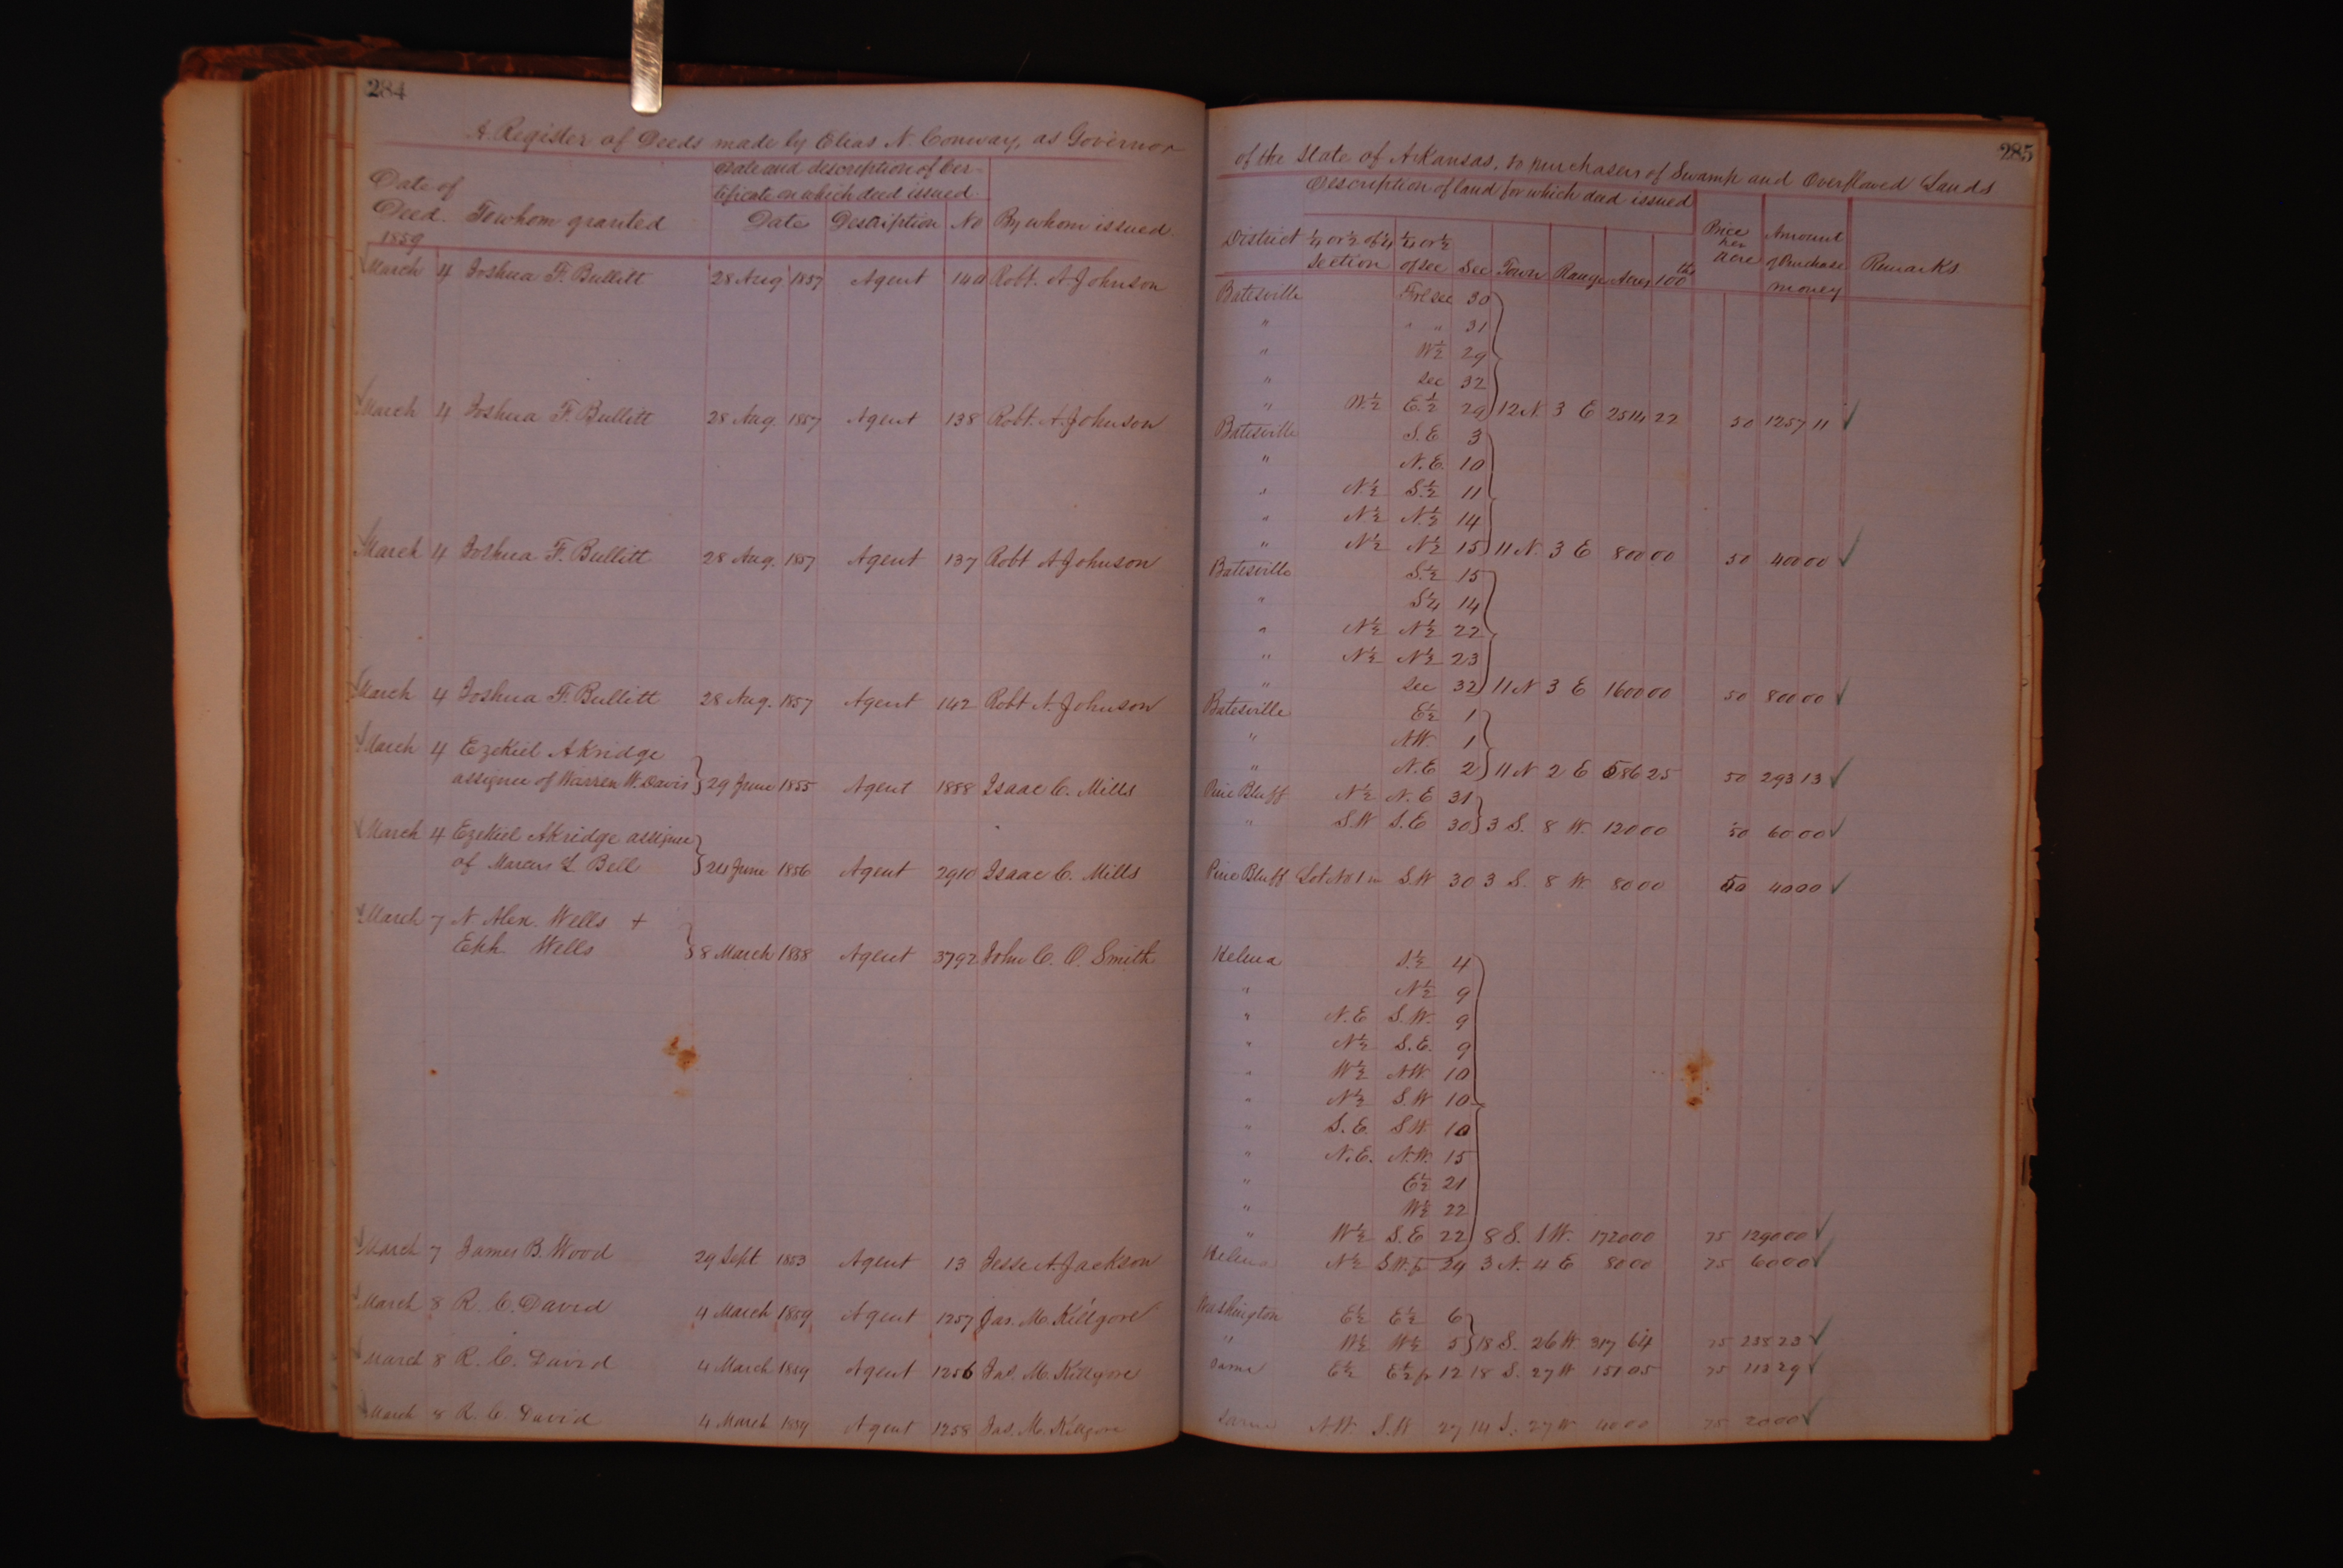 284
A Register of Deeds made by Elias N. Conway, as Governor
Date of Deed. To whom granted
Date and description of Cer-
tificate on which deed issued
Date Description No By whom issued.
1859
March 4 Joshua F. Bullitt 28 Aug 1857 Agent 140 Robt. A. Johnson
March 4 Joshua F. Bullitt 28 Aug. 1857 Agent 138 Robt. A. Johnson
March 4 Joshua F. Bullitt 28 Aug. 1857 Agent 137 Robt A Johnson
March 4 Joshua F. Bullitt 28 Aug. 1857 Agent 142 Robt A. Johnson
March 4 Ezekiel Akridge
assignee of Warren W. Davis } 29 June 1855 Agent 1888 Isaac C. Mills
March 4 Ezekiel Akridge assignee
of Marcus L Bell } 24 June 1856 Agent 2910 Isaac C. Mills
March 7 N. Alex. Wells +
Eph. Wells } 8 March 1858 Agent 3792 John C. O. Smith
March 7 James B. Wood 29 Sept 1853 Agent 13 Jesse A. Jackson
March 8 R. C. David 4 March 1859 Agent 1257 Jas. M. Killgore
March 8 R. C. David 4 March 1859 Agent 1256 Jas. M. Killgore
March 8 R. C. David 4 March 1859 Agent 1258 Jas. M. Killgore
285
of the State of Arkansas, to purchasers of Swamp and Overflowed Lands
Description of land for which deed issued
District ¼ or ½ of ¼ section ¼ or ½ of sec Sec Town Range Acres 100ths Price per Acre Amount of Purchase money Remarks
Batesville Frl sec 30
" " " 31
" W½ 29
" sec 32
" W.½ E.½ 29 } 12 N. 3 E 2514 22 50 1257 11 ✓
Batesville S.E 3
" N.E. 10
" N.½ S.½ 11
" N½ N.½ 14
" N½ N½ 15 } 11 N. 3 E 800 00 50 400 00 ✓
Batesville S.½ 15
" S½ 14
" N½ N½ 22
" N½ N½ 23
" sec 32 } 11 N 3 E 1600 00 50 800 00 ✓
Batesville E½ 1
" N.W. 1
" N.E 2 } 11 N 2 E 586 25 50 293 13 ✓
Pine Bluff N½ N.E 31
" S.W S.E 30 } 3 S. 8 W. 120 00 50 60 00 ✓
Pine Bluff Lot No 1 in S.W 30 3 S. 8 W 80 00 50 40 00 ✓
Helena S.½ 4
" N½ 9
" N.E S.W. 9
" N½ S.E. 9
" W½ N.W. 10
" N½ S.W 10
" S.E. S.W. 10
" N.E. N.W. 15
" E½ 21
" W½ 22
" W½ S.E 22 } 8 S. 1 W. 1720 00 75 1290 00 ✓
Helena N½ S.W. fr 24 3 N. 4 E 80 00 75 60 00 ✓
Washington E½ E½ 6
" W½ W½ 5 } 18 S. 26 W. 317 64 75 238 23 ✓
Same E½ E½ fr 12 18 S. 27 W 151 05 75 113 29 ✓
Same N.W. S.W 27 14 S. 27 W 40 00 75 30 00 ✓